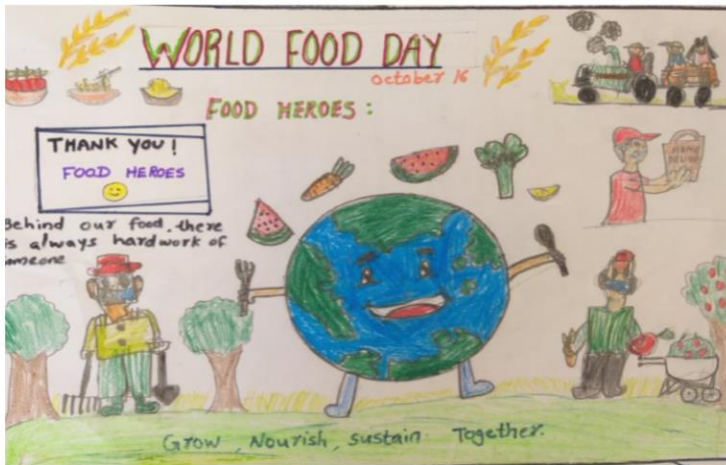 WORLD FOOD DAY
October 16
FOOD HEROES:
THANK YOU!
FOOD HEROES
Behind our food, there
is always hardwork of
someone
Grow, Nourish, sustain Together.